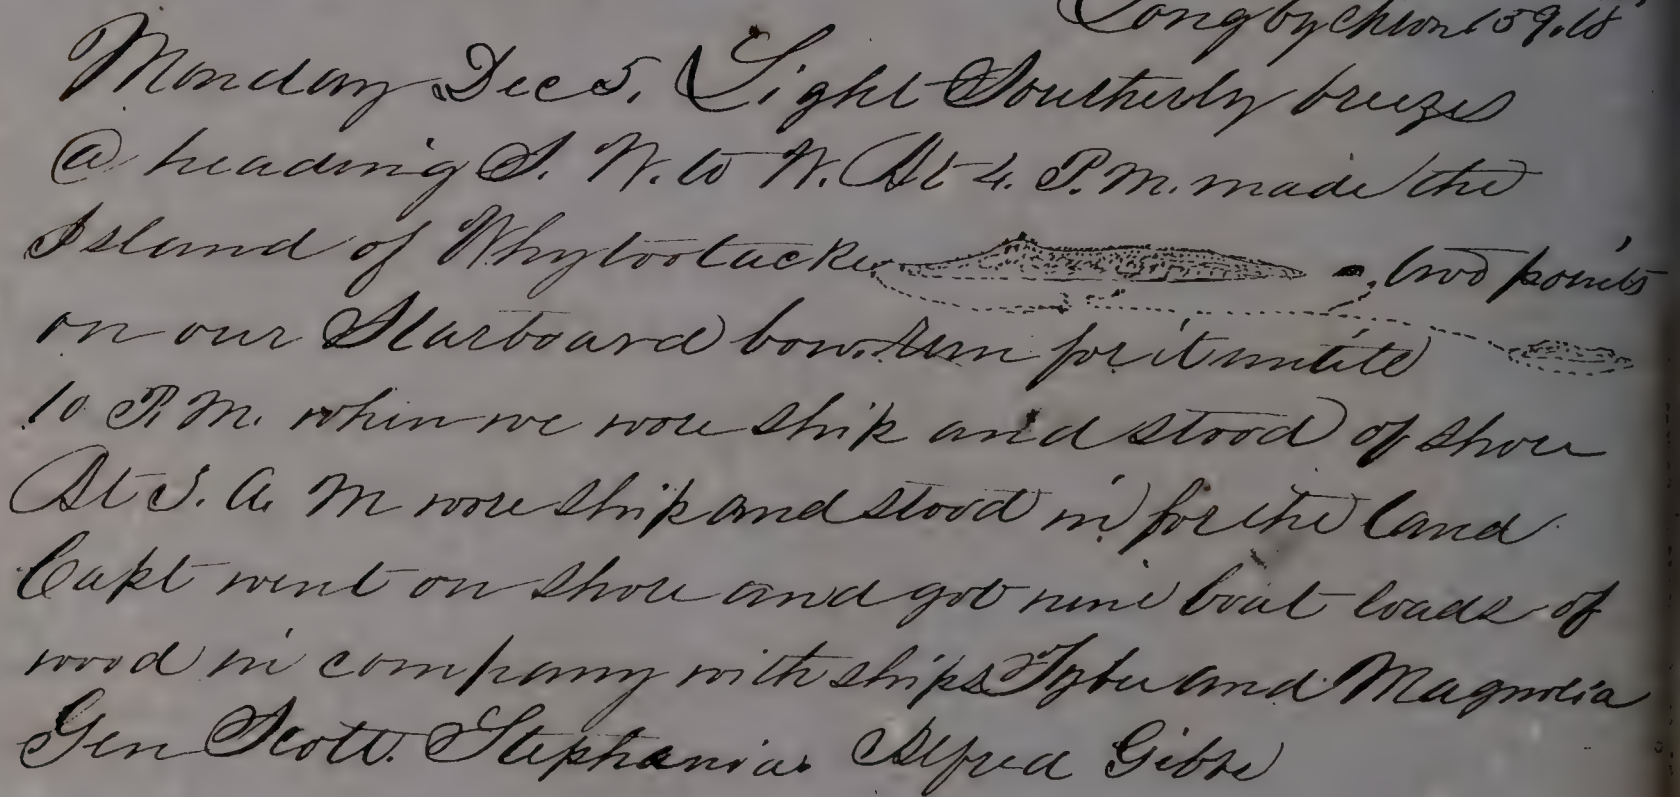 Long by Chron 159.18
Monday Dec 5, Light Southerly breezes
@ heading S. W. to W. At 4. P.M. made the
Island of Whytootacke two points
on our Starboard bow. run for it untite
10 P.M. when we wore ship and stood of shore
At 3. A. M wore ship and stood in for the land
Capt went on shore and got nine boat loads of
wood in company with ships and Magnolia
Gen Scott. Stephania. Alfred Gibbs